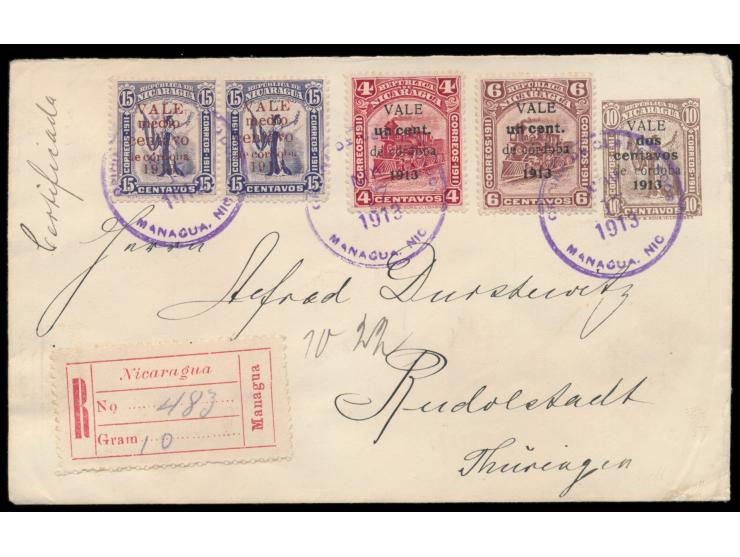 Certificada
REPÚBLICA DE
NICARAGUA
15 15
VALE
medio
centavo
de córdoba
1913
CORREOS-1911
15 15
CENTAVOS
REPÚBLICA DE
NICARAGUA
15 15
VALE
medio
centavo
de córdoba
1913
CORREOS-1911
15 15
CENTAVOS
REPÚBLICA DE
NICARAGUA
4 4
VALE
un cent.
de córdoba
1913
CORREOS-1911
4 4
CENTAVOS
REPÚBLICA DE
NICARAGUA
6 6
VALE
un cent.
de córdoba
1913
CORREOS 1911
6 6
CENTAVOS
REPÚBLICA DE
NICARAGUA
10 10
VALE
dos
centavos
de córdoba
1913
10 10
CENTAVOS
MANAGUA, NIC
1913
MANAGUA, NIC
1913
MANAGUA, NIC
Herrn
Alfred Durstewitz
Rudolstadt
Thüringen
R
Nicaragua
No 483
Gram 10
Managua